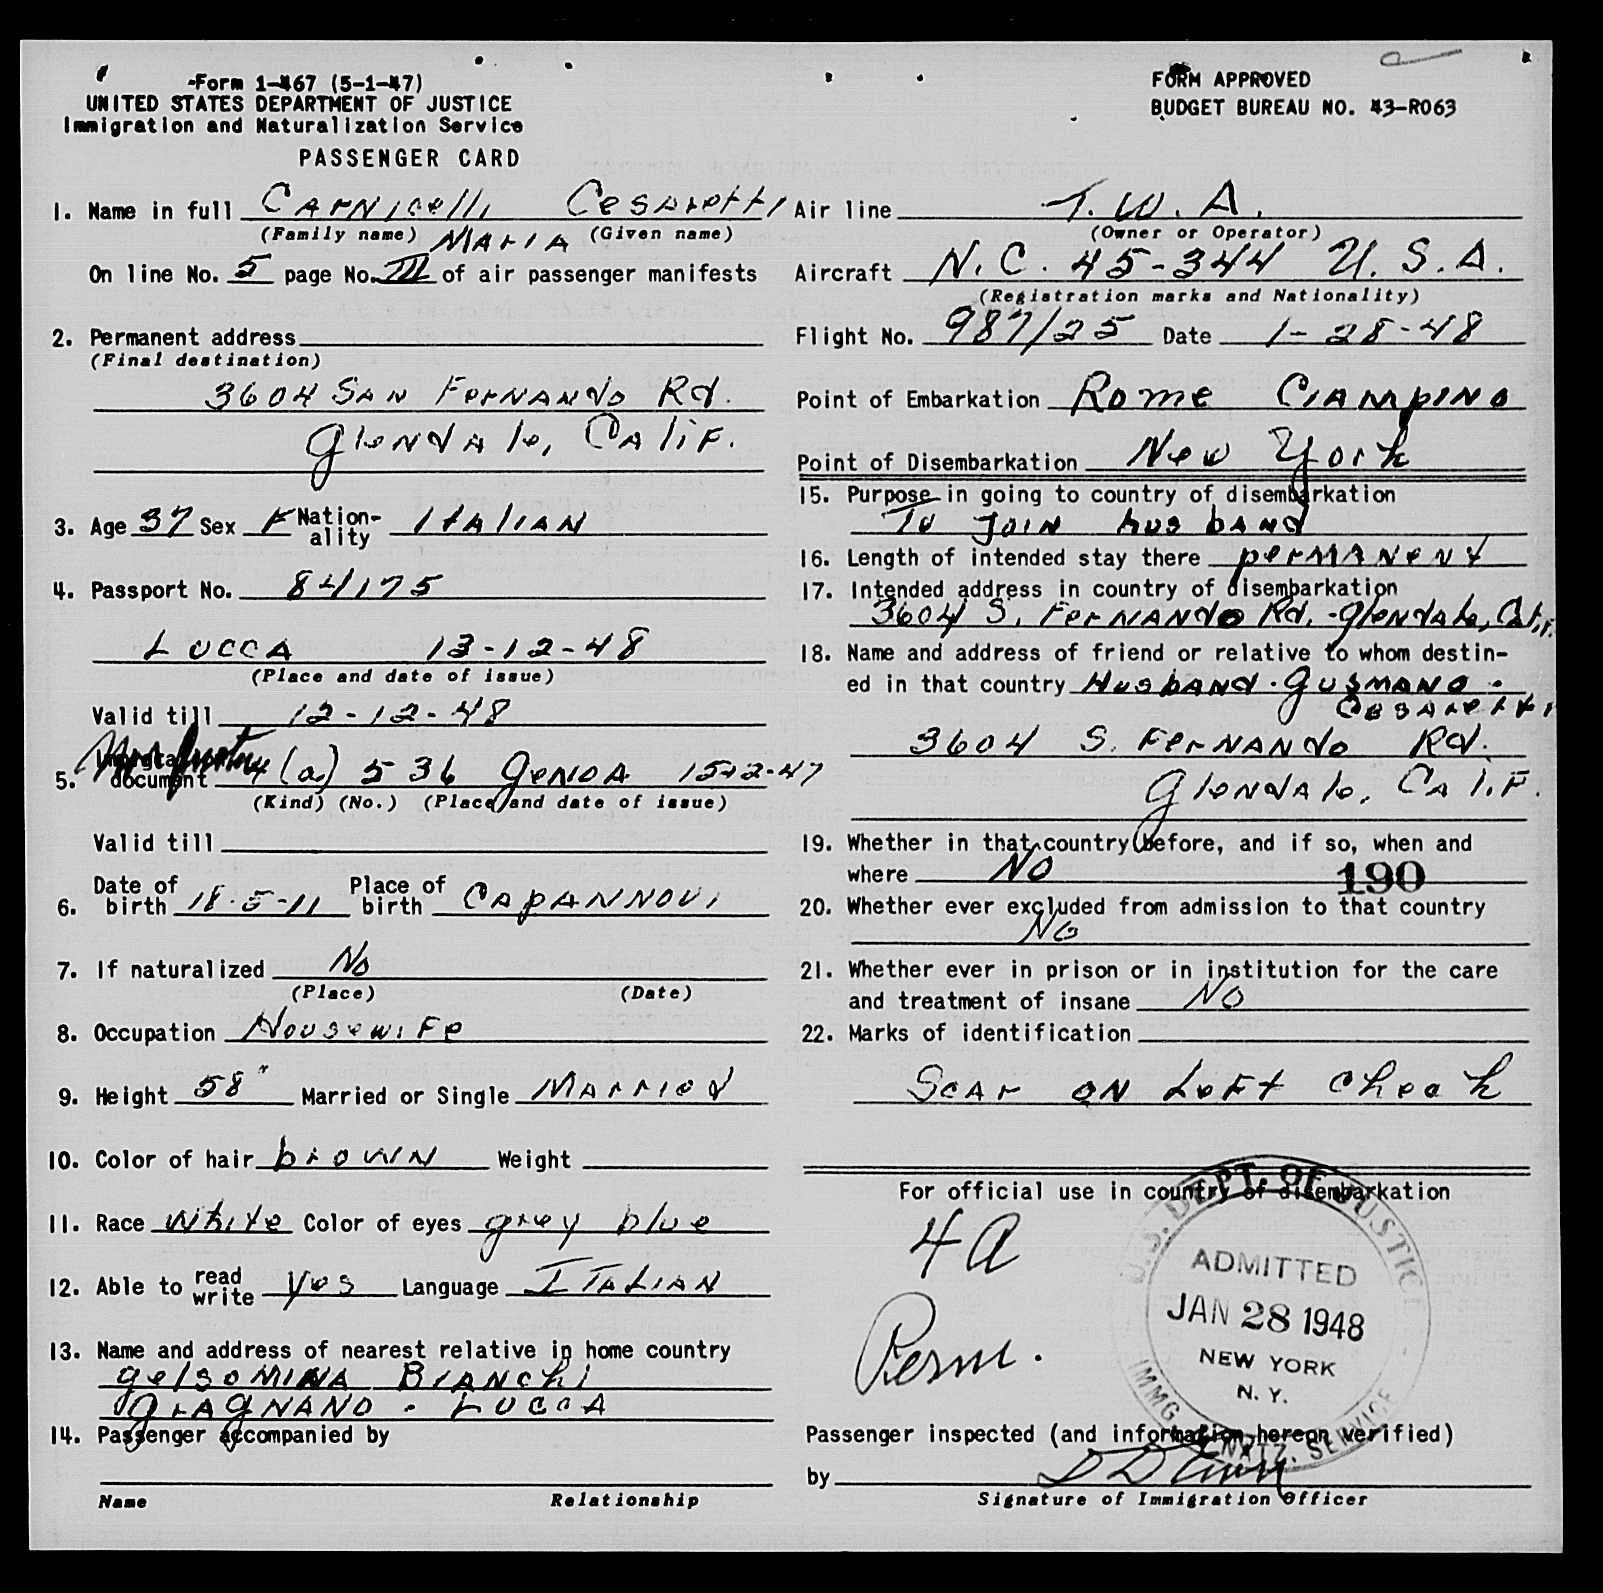 Form 1-467 (5-1-47)
UNITED STATES DEPARTMENT OF JUSTICE
Immigration and Naturalization Service
PASSENGER CARD
FORM APPROVED
BUDGET BUREAU NO. 43-R063
1. Name in full Carnicelli Cesaretti
(Family name) Maria (Given name)
On line No. 5 page No. III of air passenger manifests
2. Permanent address
(Final destination)
3604 San Fernando Rd.
Glendale, Calif.
3. Age 37 Sex F Nation-ality Italian
4. Passport No. 84175
Lucca 13-12-48
(Place and date of issue)
Valid till 12-12-48
5. document 4(a) 536 Genoa 15-12-47
(Kind) (No.) (Place and date of issue)
Valid till
6. Date of birth 18-5-11 Place of birth Capannovi
7. If naturalized No
(Place) (Date)
8. Occupation Housewife
9. Height 58" Married or Single Married
10. Color of hair brown Weight
11. Race White Color of eyes grey blue
12. Able to read write Yes Language Italian
13. Name and address of nearest relative in home country
Gelsomina Bianchi
Gragnano - Lucca
14. Passenger accompanied by
Name Relationship
Air line T.W.A.
(Owner or Operator)
Aircraft N.C. 45-344 U.S.A.
(Registration marks and Nationality)
Flight No. 987/25 Date 1-28-48
Point of Embarkation Rome Ciampino
Point of Disembarkation New York
15. Purpose in going to country of disembarkation
To join husband
16. Length of intended stay there permanent
17. Intended address in country of disembarkation
3604 S. Fernando Rd. - Glendale, Calif.
18. Name and address of friend or relative to whom destin-
ed in that country Husband - Gusmano -
Cesaretti
3604 S. Fernando Rd.
Glendale, Calif.
19. Whether in that country before, and if so, when and
where No
190
20. Whether ever excluded from admission to that country
No
21. Whether ever in prison or in institution for the care
and treatment of insane No
22. Marks of identification
Scar on left cheek
For official use in country of disembarkation
4a
Perm.
U.S. DEPT. OF JUSTICE
ADMITTED
JAN 28 1948
NEW YORK
N. Y.
IMMG. & NATZ. SERVICE
Passenger inspected (and information hereon verified)
by
Signature of Immigration Officer